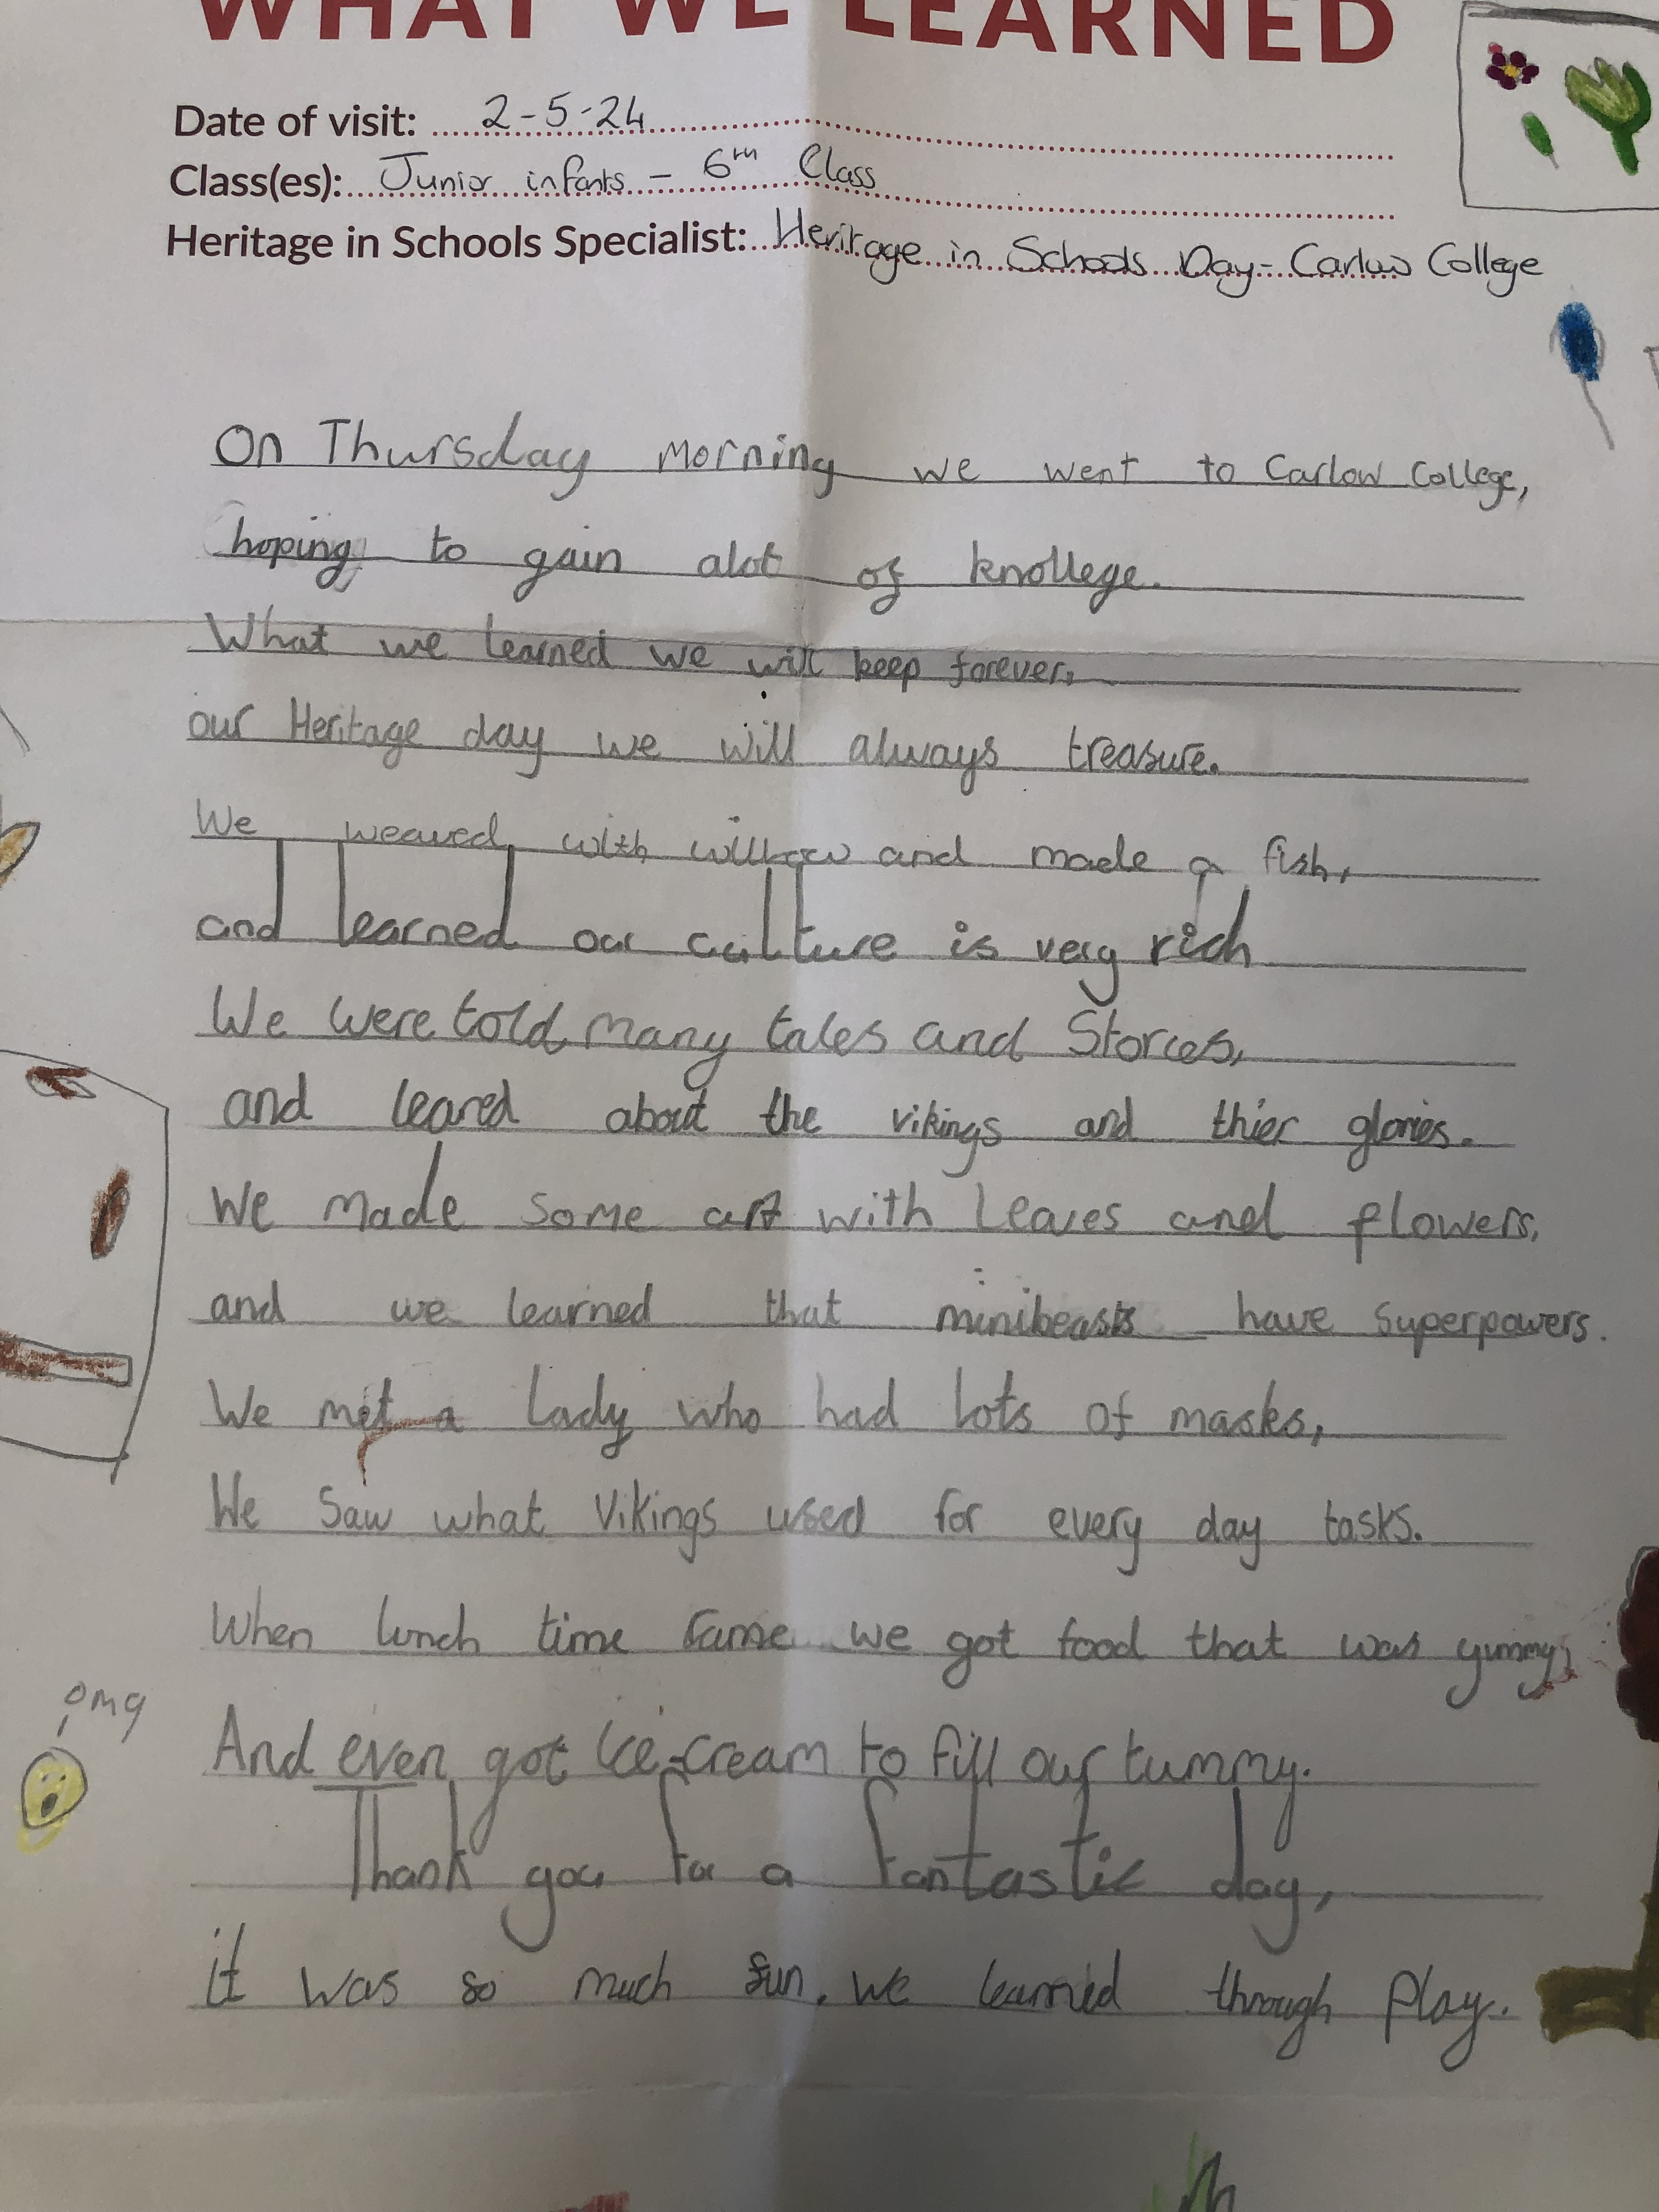 WHAT WE LEARNED
Date of visit: 2-5-24
Class(es): Junior infants - 6th Class
Heritage in Schools Specialist: Heritage in Schools Day - Carlow College
On Thursday morning we went to Carlow College,
hoping to gain alot of knollege.
What we learned we will keep forever,
our Heritage day we will always treasure.
We weaved with willow and made a fish,
and learned our culture is very rich
We were told many tales and Stories,
and leared about the vikings and thier glories.
We made some art with leaves and flowers,
and we learned that minibeasts have superpowers.
We met a lady who had lots of masks,
We saw what vikings used for every day tasks.
When lunch time came we got food that was yummy,
And even got ice-cream to fill our tummy.
omg
Thank you for a fantastic day,
it was so much fun. we learned through play.